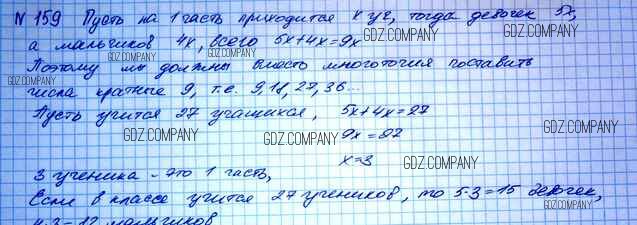 № 159 Пусть на 1 часть приходится x уч, тогда девочек 5x,
а мальчиков 4x, всего 5x+4x=9x
Поэтому мы должны вместо многоточия поставить
числа кратные 9, т.е. 9,18,27,36...
Пусть учится 27 учащихся, 5x+4x=27
9x=27
x=3
3 ученика - это 1 часть,
Если в классе учится 27 учеников, то 5·3=15 девочек,
4·3=12 мальчиков
GDZ.COMPANY
GDZ.COMPANY
GDZ.COMPANY
GDZ.COMPANY
GDZ.COMPANY
GDZ.COMPANY
GDZ.COMPANY
GDZ.COMPANY
GDZ.COMPANY
GDZ.COMPANY